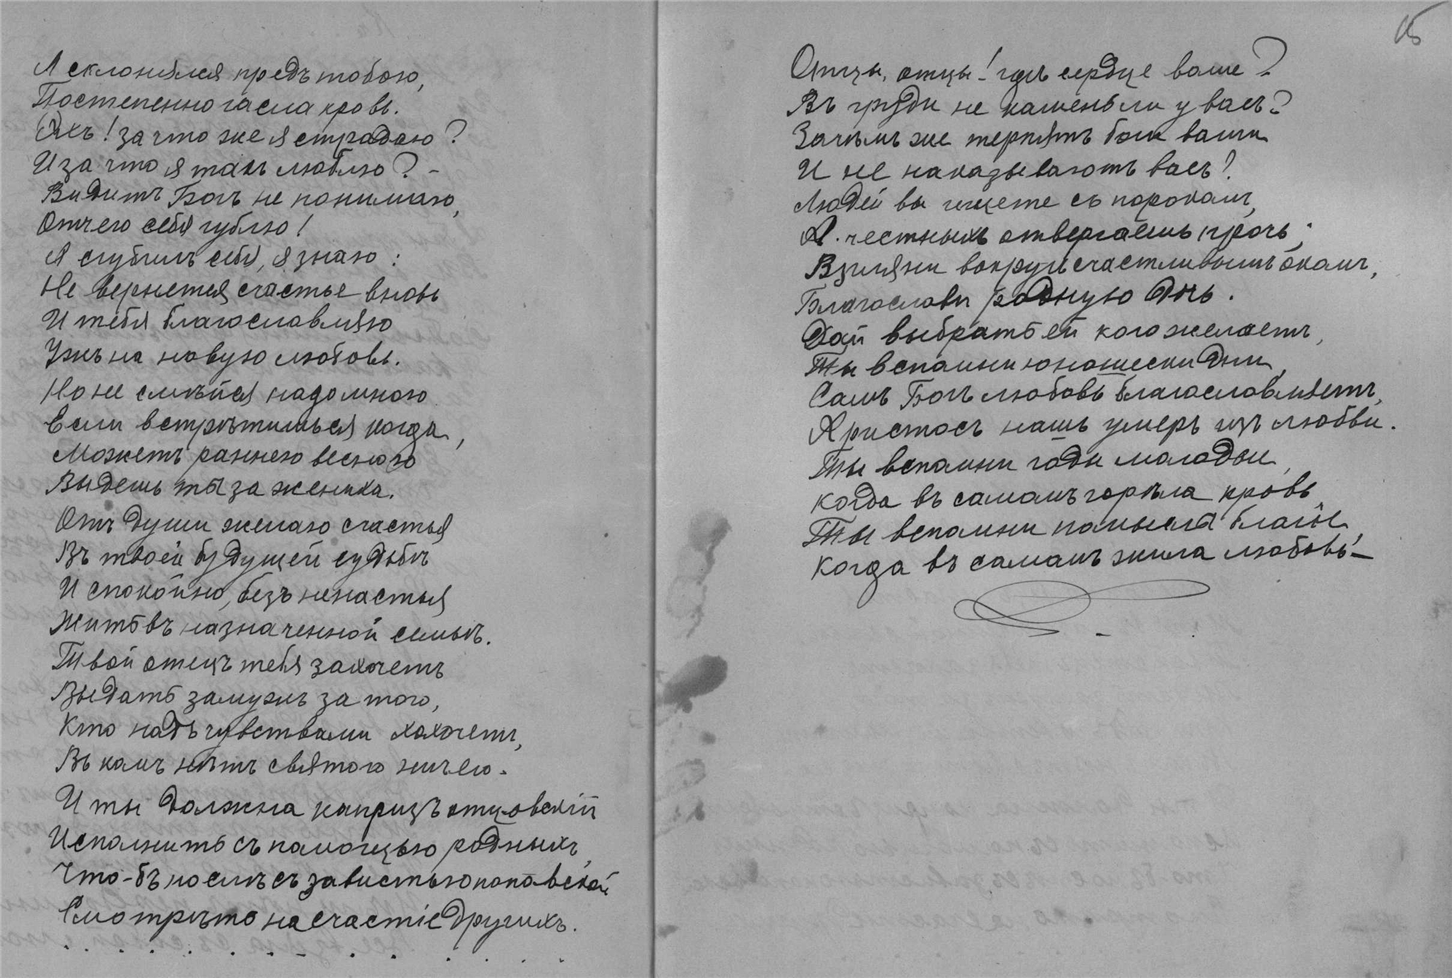 Я склонился предъ тобою,
Постепенно гасла кровь.
Охъ! за что же я страдаю?
И за что я такъ люблю? –
Видитъ Богъ не понимаю,
Отчего себя гублю!
Я сгубилъ себя, я знаю:
Не вернется счастье вновь
И тебя благословляю
Ужъ на новую любовь.
Но не смѣйся надо мною
Если встрѣтишься когда,
Можетъ раннею весною
Выдешь ты за жениха.
Отъ души желаю счастья
Въ твоей будущей судьбѣ
И спокойно, безъ ненастья
Жить въ назначенной семьѣ.
Твой отецъ тебя захочетъ
Выдать замужъ за того,
Кто надъ чувствами хохочетъ,
Въ комъ нѣтъ святого ничего.
И ты должна капризъ отцовскій
Исполнить съ помощью родныхъ,
Что-бъ послѣ съ завистью поповской
Смотрѣть на счастіе другихъ.
15
Отцы, отцы! гдѣ сердце ваше?
Въ груди не камень ли у васъ?
Зачѣмъ же терпятъ боги ваши
И не наказываютъ васъ!
Людей вы ищете съ порокомъ,
А честныхъ отвергаешь прочь;
Взгляни вокругъ счастливымъ окомъ,
Благослови родную дочь.
Дай выбрать ей кого желаетъ,
Ты вспомни юношески дни,
Самъ Богъ любовь благословляетъ,
Христосъ нашъ умеръ изъ любви.
Ты вспомни годы молодые,
Когда въ самомъ горѣла кровь,
Ты вспомни помыслы благіе,
Когда въ самомъ жила любовь! –